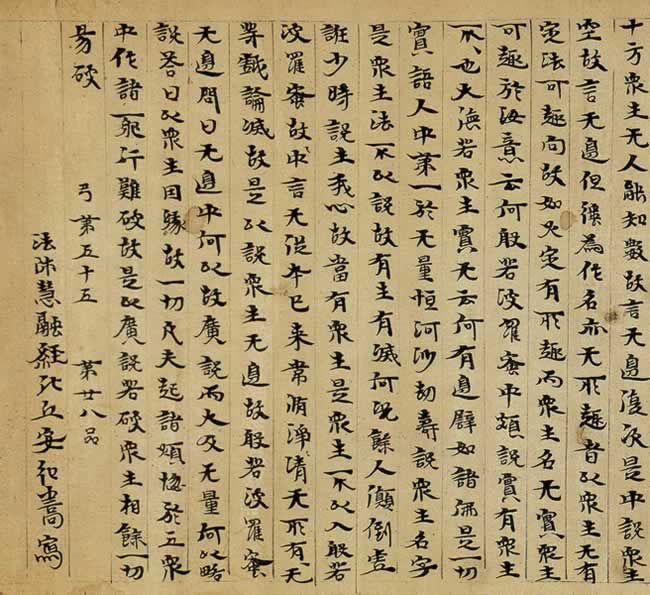 十方衆生无人能知數故言无邊復次是中說衆生
空故言无邊但彊為作名亦无所趣者以衆生无有
定法可趣向故如火定有所趣而衆生名无實衆生
可趣於汝意云何般若波羅蜜中頗說實有衆生
不、也大德若衆生實无云何有邊辟如諸佛是一切
實語人中第一於无量恒河沙劫壽說衆生名字
是衆生法不以說故有生有滅何況餘人顛倒虛
誑少時說生我心故當有衆生是衆生不以入般若
波羅蜜故中言无從本已来常清淨清无所有、无
等戲論滅故是以說衆生无邊故般若波羅蜜
无邊問曰无邊中何以故廣說而大及无量何以略
說荅曰以衆生因緣故一切凡夫起諸煩惱於五衆
中作諸邪行難破故是以廣說若破衆生相餘一切
易破
弓第五十五 第廿八品
法師慧融經比丘安弘嵩寫